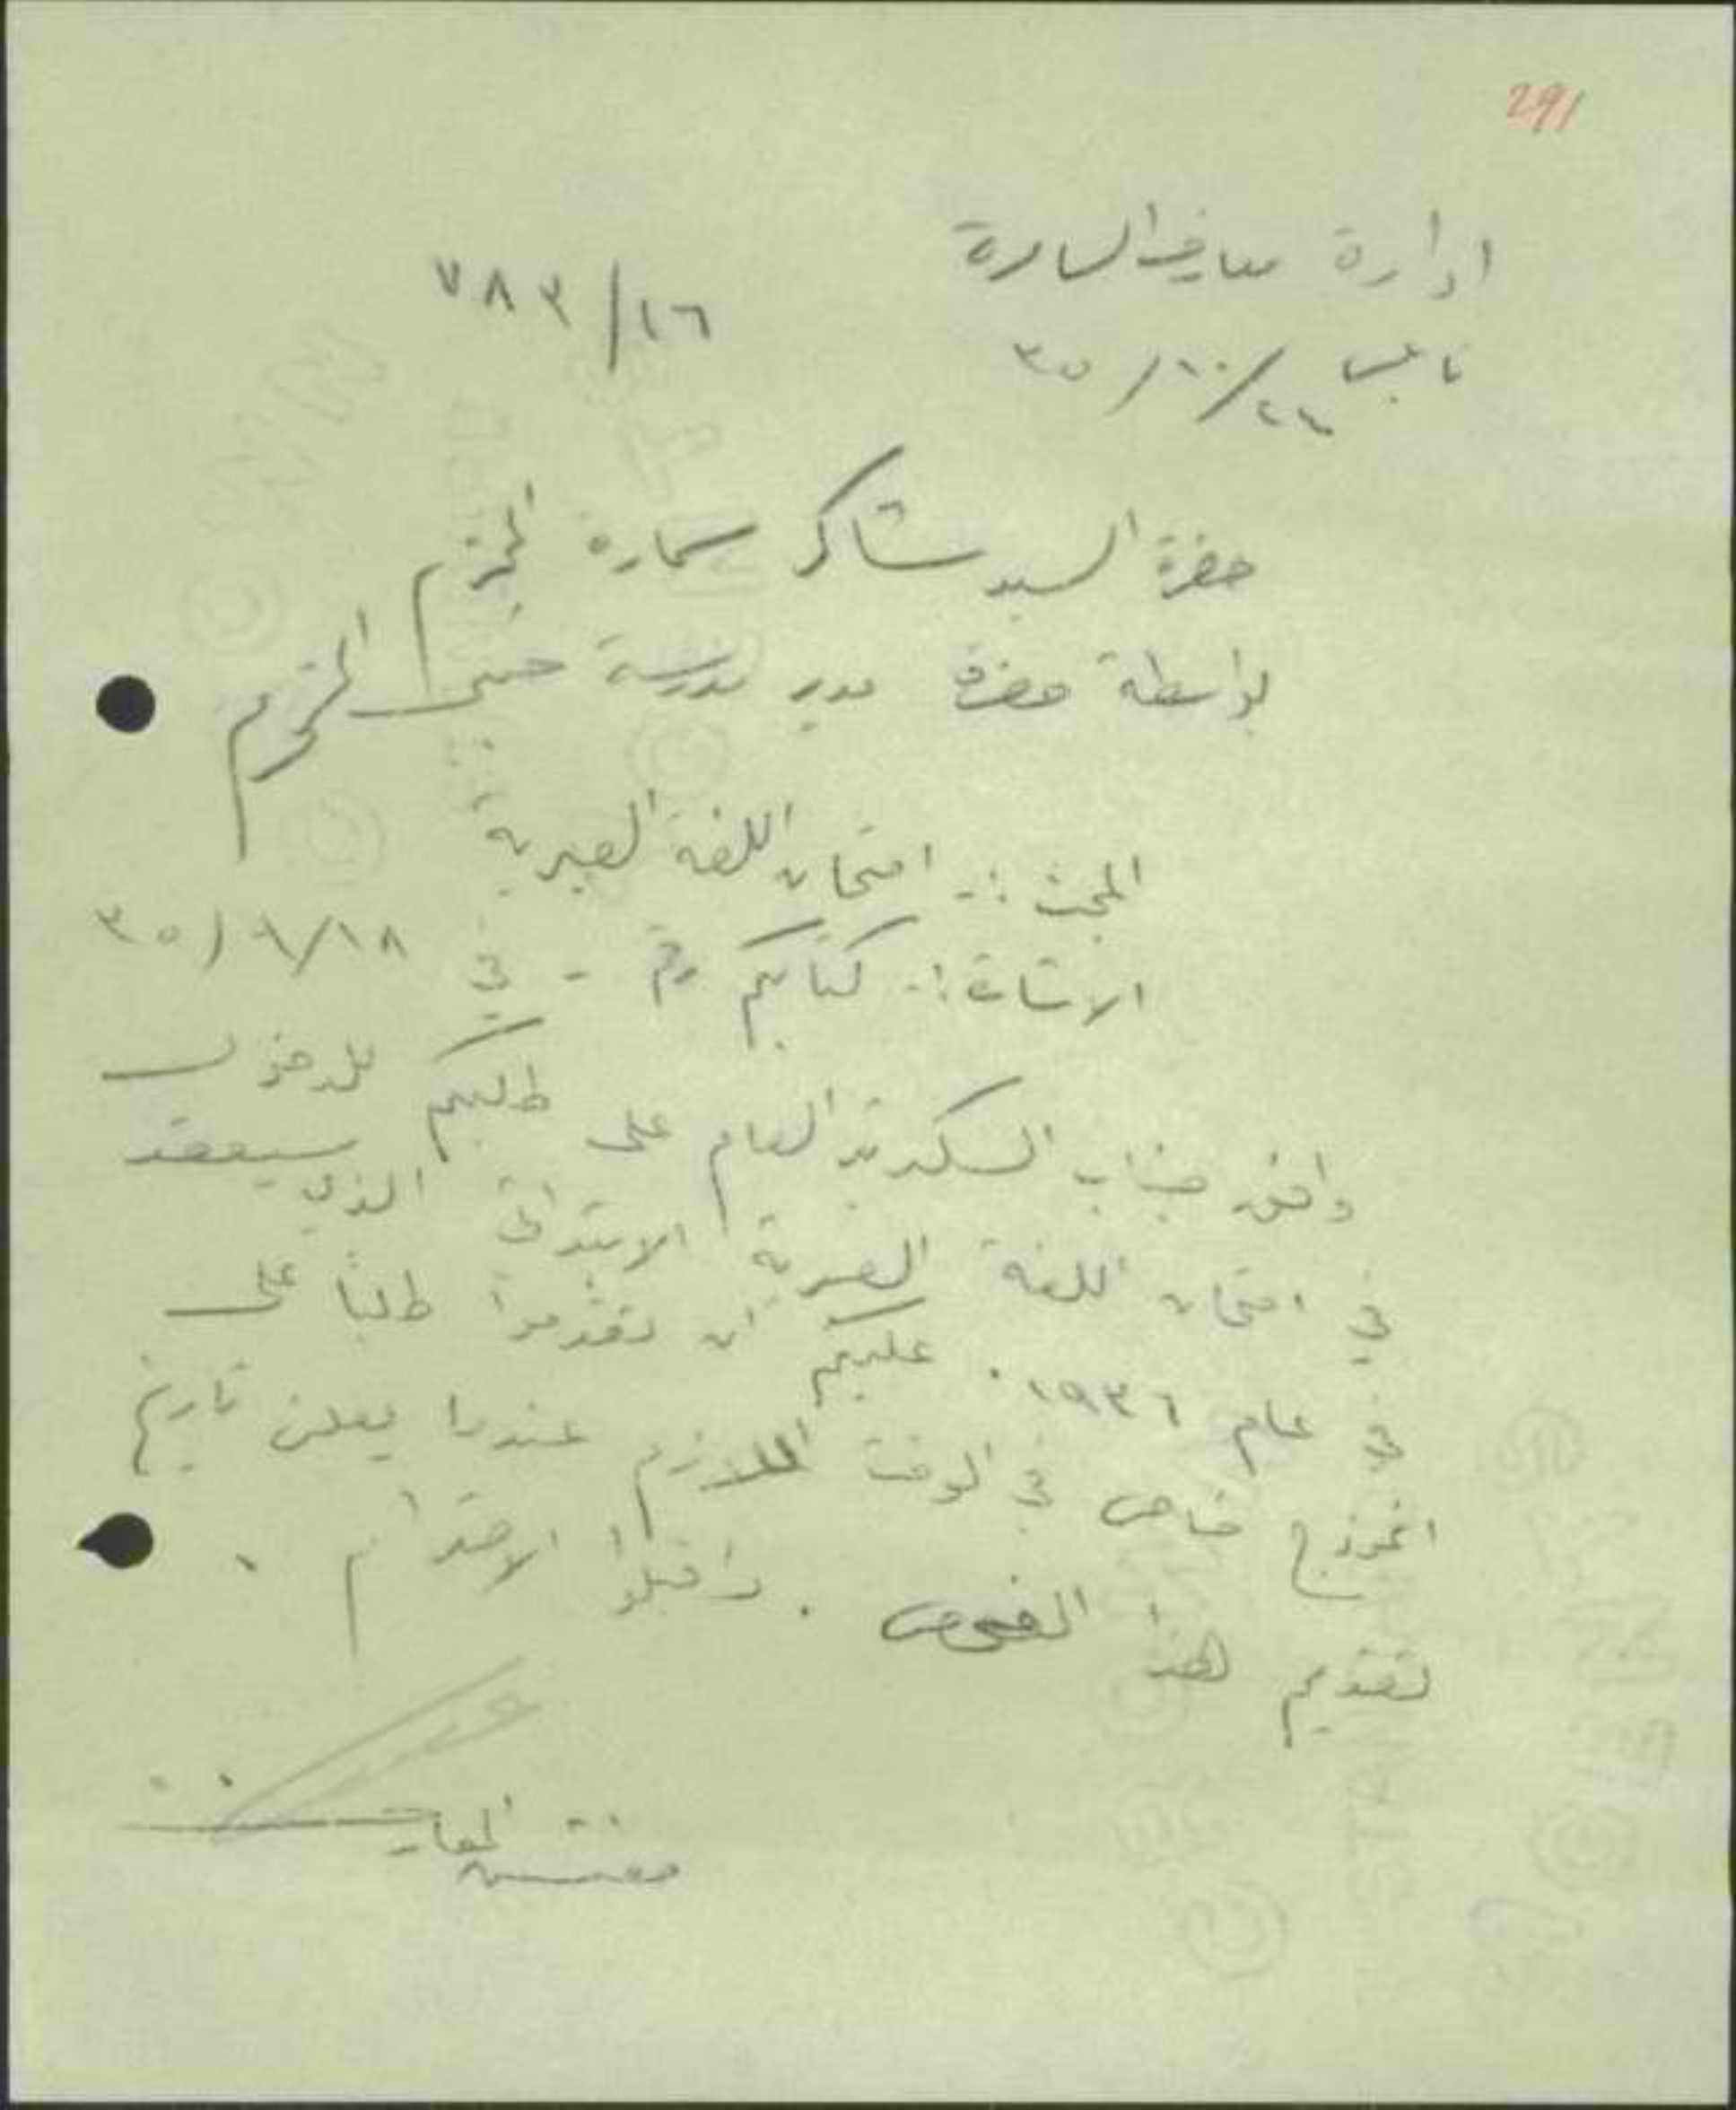 291
ادارة معارف السامرة
٧٨٣/١٦
نابلس ٢٤/١٠/٣٥
حضرة السيد شاكر سمارة المحترم
بواسطة حضرة مدير مدرسة المحترم
المبحث :- امتحان اللغة العبرية
الاشارة :- كتابكم رقم - في ١٨/٩/٣٥
وافق جناب السكرتير العام على طلبكم للدخول
في امتحان اللغة العبرية الابتدائي الذي سيعقد
في عام ١٩٣٦ . عليكم ان تقدموا طلباً على
انموذج خاص في الوقت اللازم عندما يعلن تاريخ
تقديم هذا الفحص . واقبلوا الاحترام .
مفتش المعارف